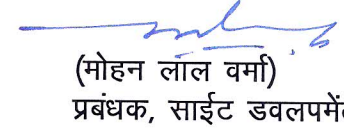 (मोहन लाल वर्मा)
प्रबंधक, साईट डवलपमें